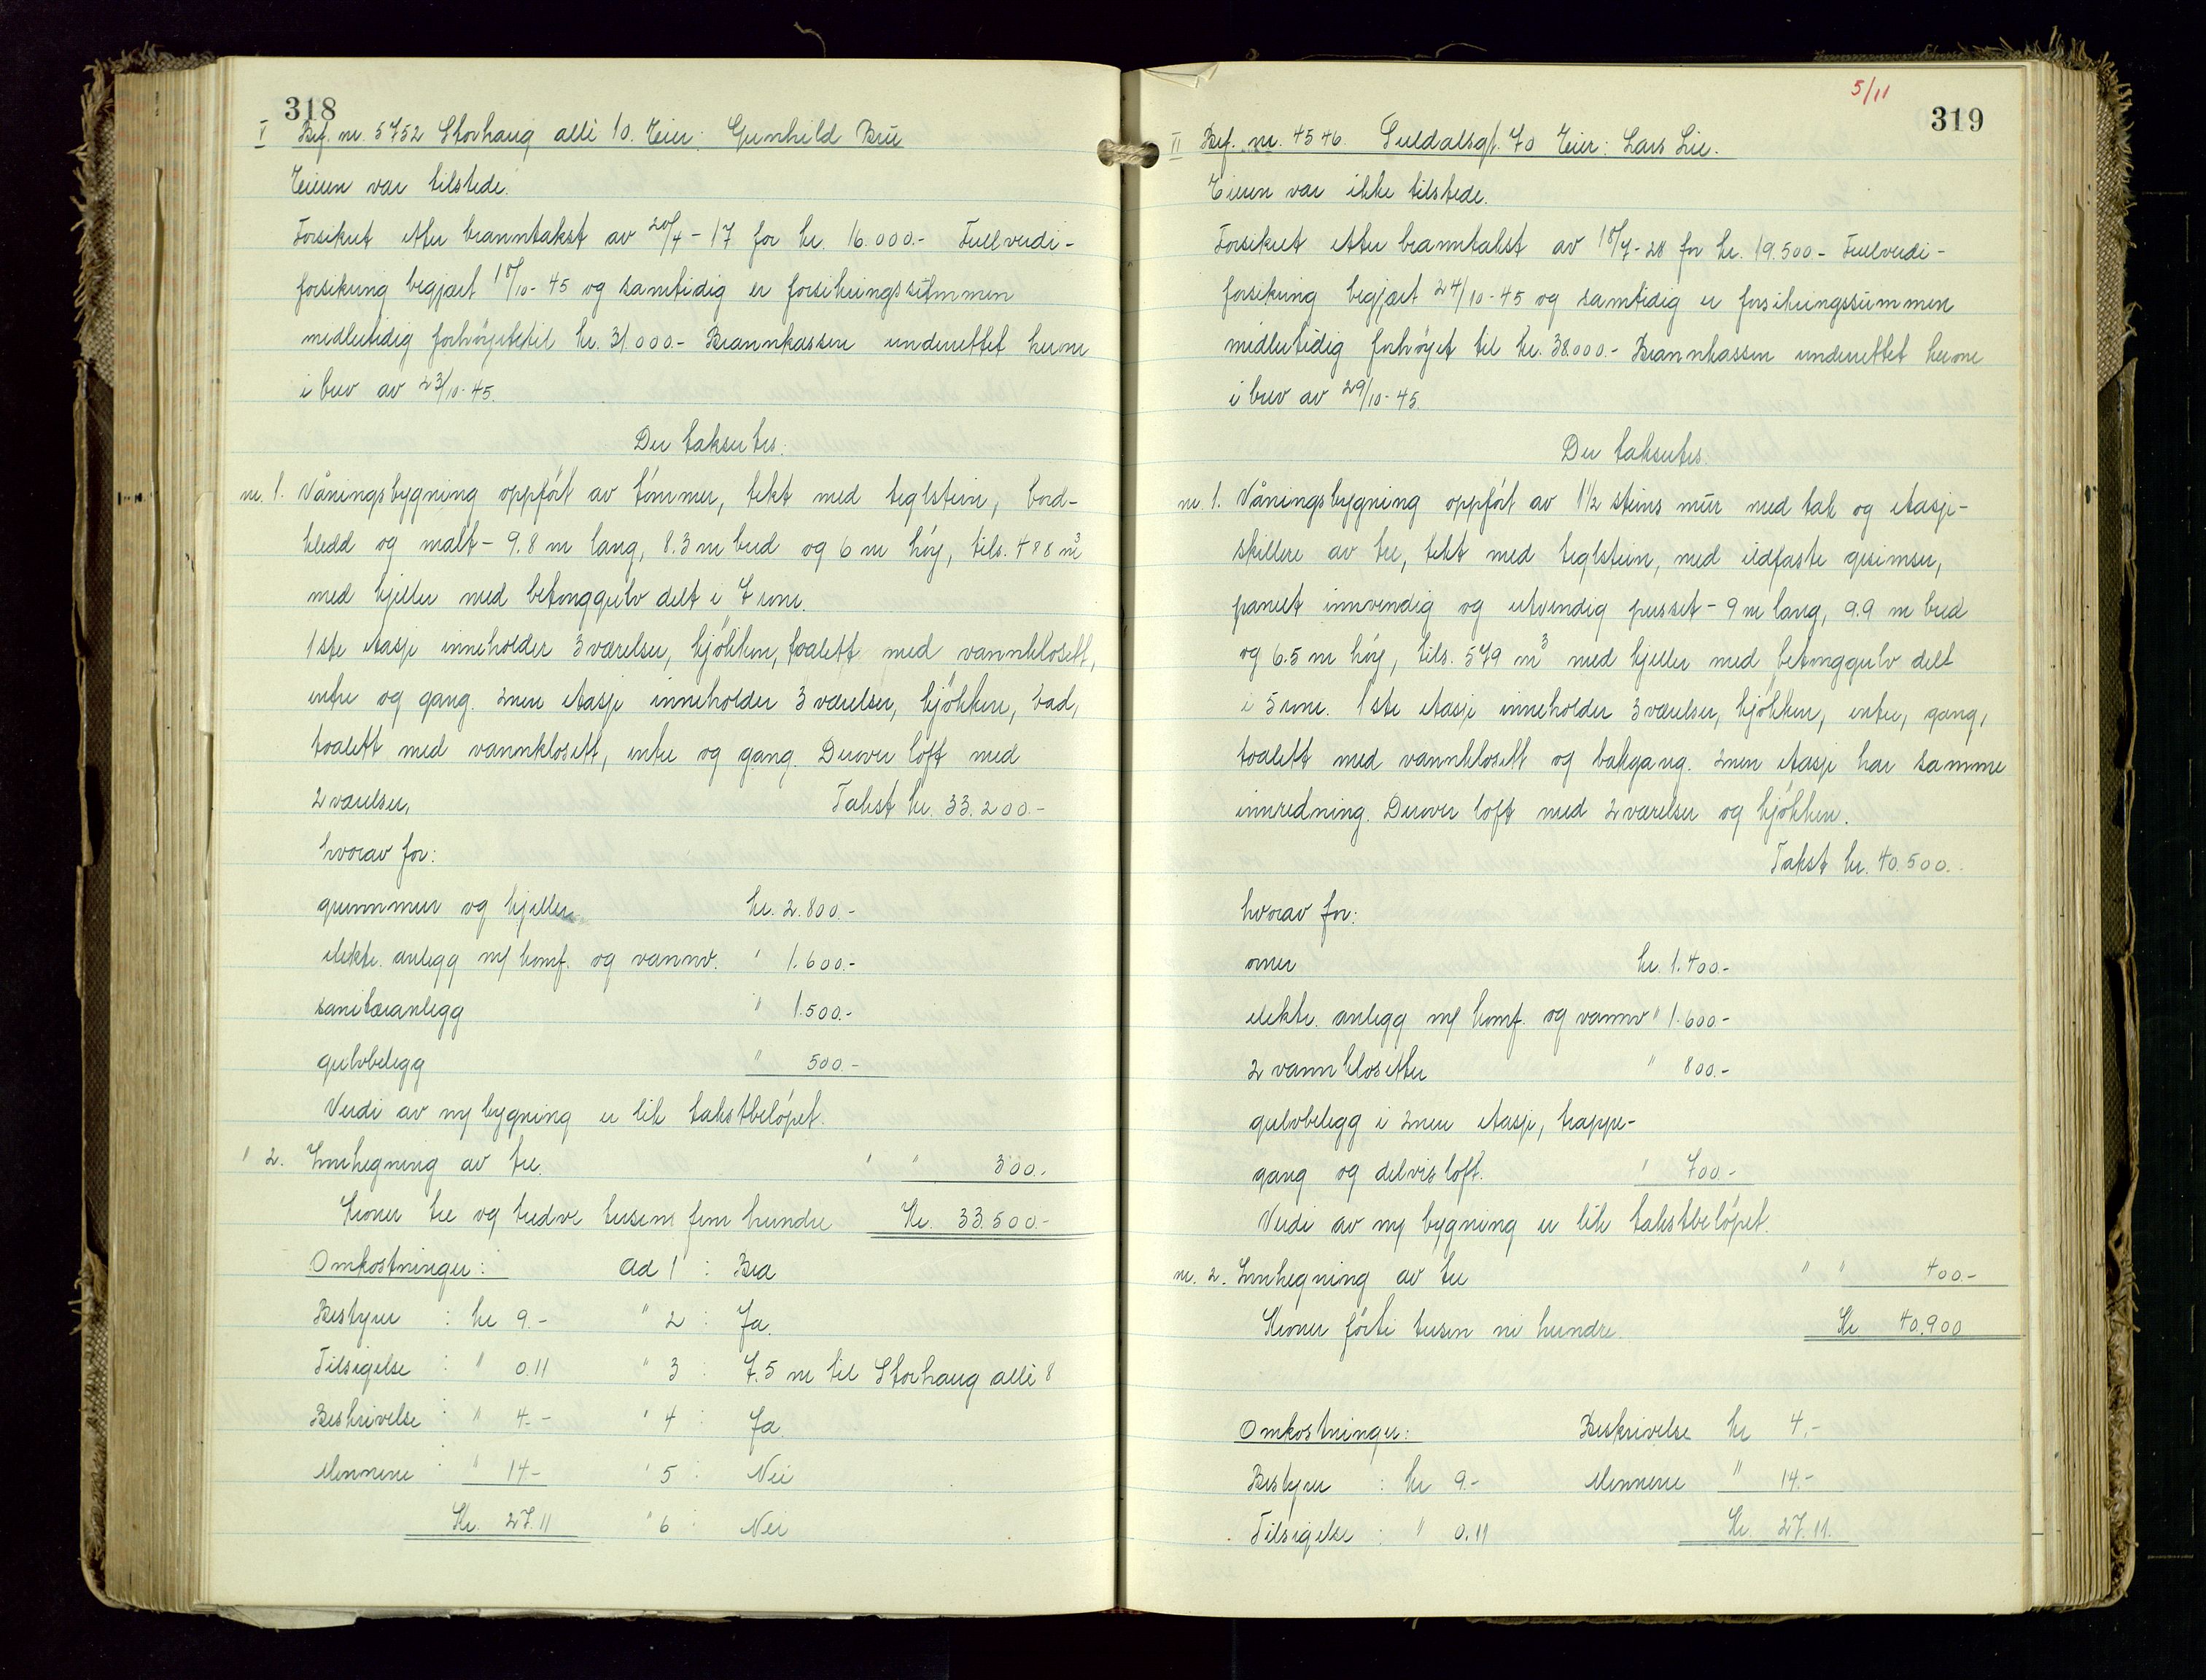 318
V Brf. nr. 5752 Storhaug allè 10. Eier: Gunhild Brú
Eieren var tilstede.
Forsikret etter branntakst av 20/4-17 for kr. 16.000.- Fullverdi-
forsikring begjært 18/10-45 og samtidig er forsikringssúmmen
midlertidig forhöyet til kr. 31.000.- Brannkassen underrettet herom
i brev av 23/10-45.
Der takseres.
nr. 1. Våningsbygning oppfört av tömmer, tekt med teglstein, bord-
kledd og malt - 9.8 m lang, 8.3 m bred og 6 m höy, tils. 488 m3
med kjeller med betonggulv delt i 7 rom.
1ste etasje inneholder 3 værelser, kjökken, toalett med vannklosett,
entre og gang. 2nen etasje inneholder 3 værelser, kjökken, bad,
toalett med vannklosett, entre og gang. Derover loft med
2 værelser, Takst kr. 33.200.-
hvorav for:
grunnmur og kjeller kr. 2.800.-
elektr. anlegg m/ komf. og vannv. " 1.600.-
sanitæranlegg " 1.500.-
gulvbelegg " 500.-
Verdi av ny bygning er lik takstbelöpet.
" 2. Innhegning av tre. " " 300.-
Kroner tre og tredve tusen fem hundre Kr. 33.500.-
Omkostninger: ad 1 : Bra
Bestyrer : kr 9.- " 2 : Ja.
Tilsigelse : " 0.11 " 3 : 7.5 m til Storhaug allè 8
Beskrivelse : " 4.- " 4 : Ja.
Mennene : " 14.- " 5 : Nei
Kr. 27.11 " 6 : Nei
5/11
319
VI Brf. nr. 4546. Suldalsgt. 70 Eier: Lars Lie.
Eieren var ikke tilstede.
Forsikret etter branntakst av 18/7-28 for kr. 19.500.- Fullverdi-
forsikring begjært 24/10-45 og samtidig er forsikringssummen
midlertidig forhöyet til kr. 38.000.- Brannkassen underrettet herom
i brev av 29/10-45.
Der takseres.
nr. 1. Våningsbygning oppfört av 1 1/2 steins múr med tak og etasje-
skillere av tre, tekt med teglstein, med ildfaste gesimser,
panelt innvendig og utvendig pusset - 9 m lang, 9.9 m bred
og 6.5 m höy, tils. 579 m3 med kjeller med betonggulv delt
i 5 rom. 1ste etasje inneholder 3 værelser, kjökken, entre, gang,
toalett med vannklosett og bakgang. 2nen etasje har samme
innredning. Derover loft med 2 værelser og kjökken.
Takst kr. 40.500.-
hvorav for:
ovner kr. 1.400.-
elektr. anlegg m/ komf. og vannv " 1.600.-
2 vannklosetter " 800.-
gulvbelegg i 2nen etasje, trappe-
gang og delvis loft. " 700.-
Verdi av ny bygning er lik takstbelöpet.
nr. 2. Innhegning av tre " " 400.-
Kroner förti tusen ni hundre. Kr 40.900
Omkostninger: Beskrivelse kr 4.-
Bestyrer : kr 9.- Mennene " 14.-
Tilsigelse : " 0.11 Kr. 27.11.